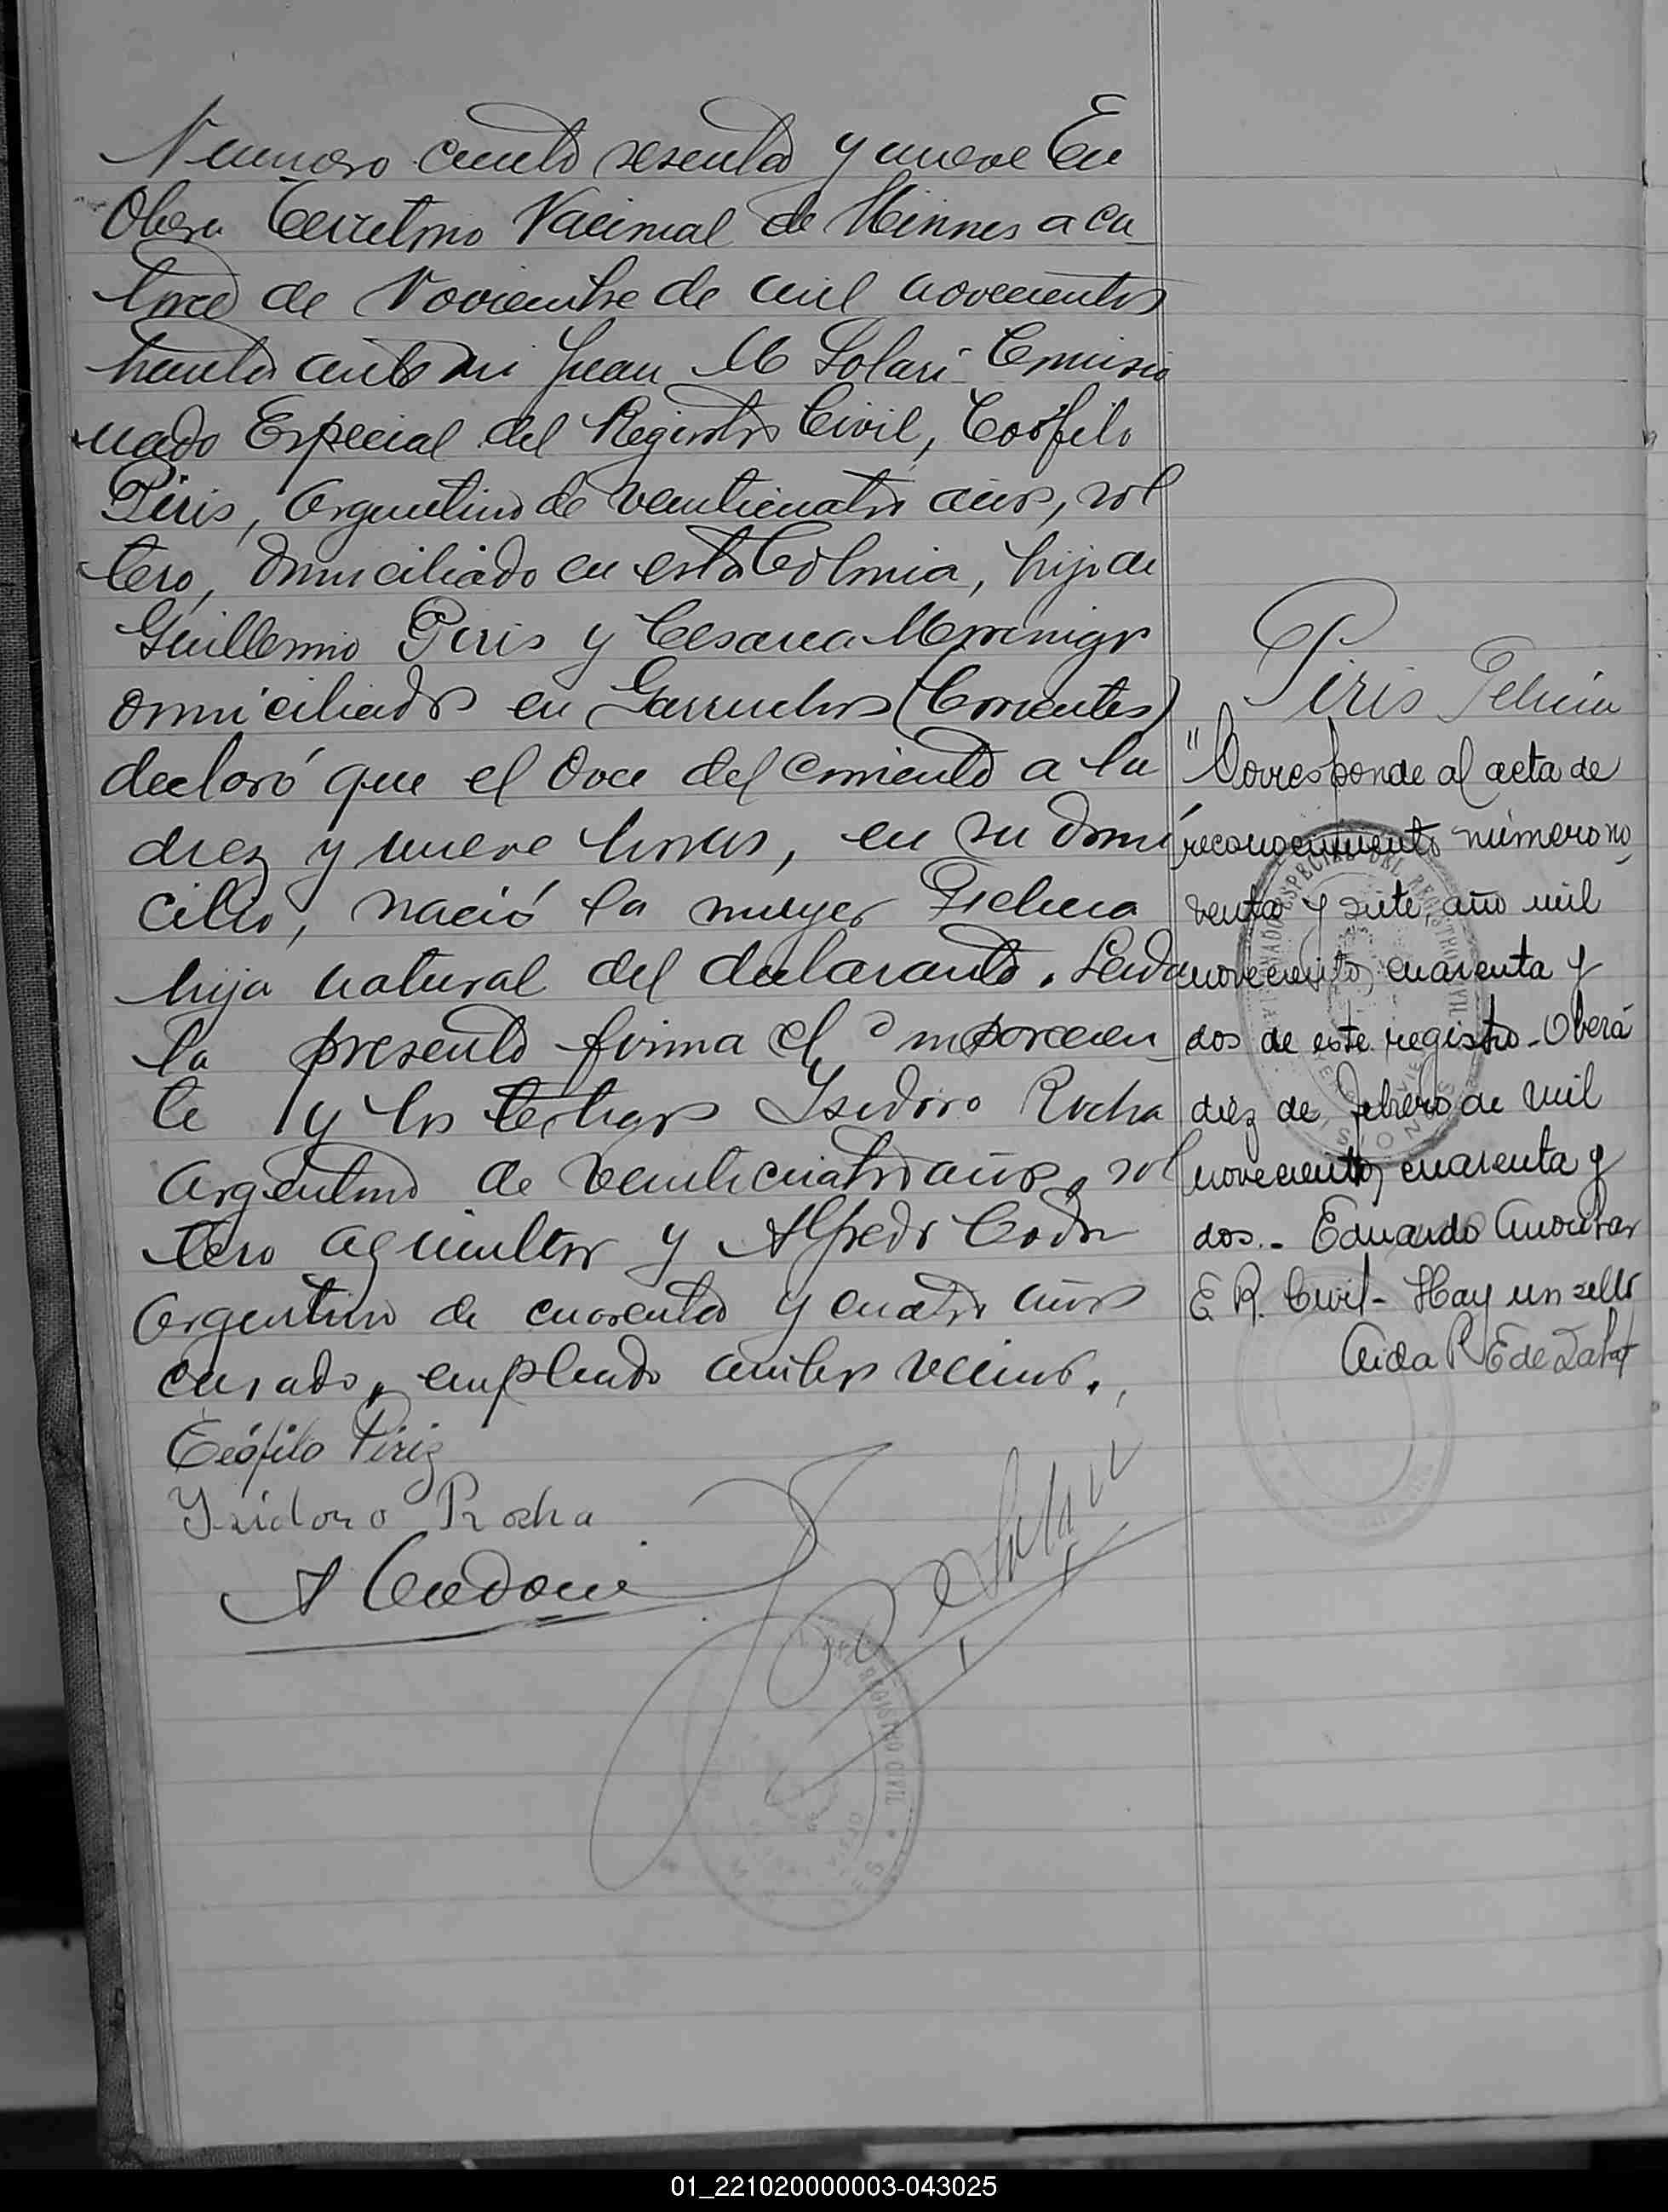 Numero ciento sesenta y nueve En
Obera Territorio Nacional de Misiones a ca_
torce de Noviembre de mil novecientos
treinta ante mi Juan M Solari Comisio
nado Especial del Registro Civil, Teófilo
Piris, Argentino de veinticuatro años, sol
tero, domiciliado en esta Colonia, hijo de
Guillermo Piris y Cesarea
domiciliados en Garruchos (Corrientes)
declaró que el doce del corriente a la
diez y nueve horas, en su domi
cilio, nació la mujer
hija natural del declarante. Leida
la presente firma el comparecien_
te y los testigos Isidoro Rocha
Argentino de veinticuatro años, sol
tero agricultor y Alfredo
Argentino de cuarenta y cuatro años
casado, empleado ambos vecinos.
Teófilo Piriz
Ysidoro Rocha
A
Piris
"Corresponde al acta de
reconocimiento número no_
venta y siete, año mil
novecientos cuarenta y
dos de este registro. Oberá
diez de febrero de mil
novecientos cuarenta y
dos.- Eduardo
E. R. Civil - Hay un sello
Aida R E de
DEL REGISTRO CIVIL
01_221020000003-043025